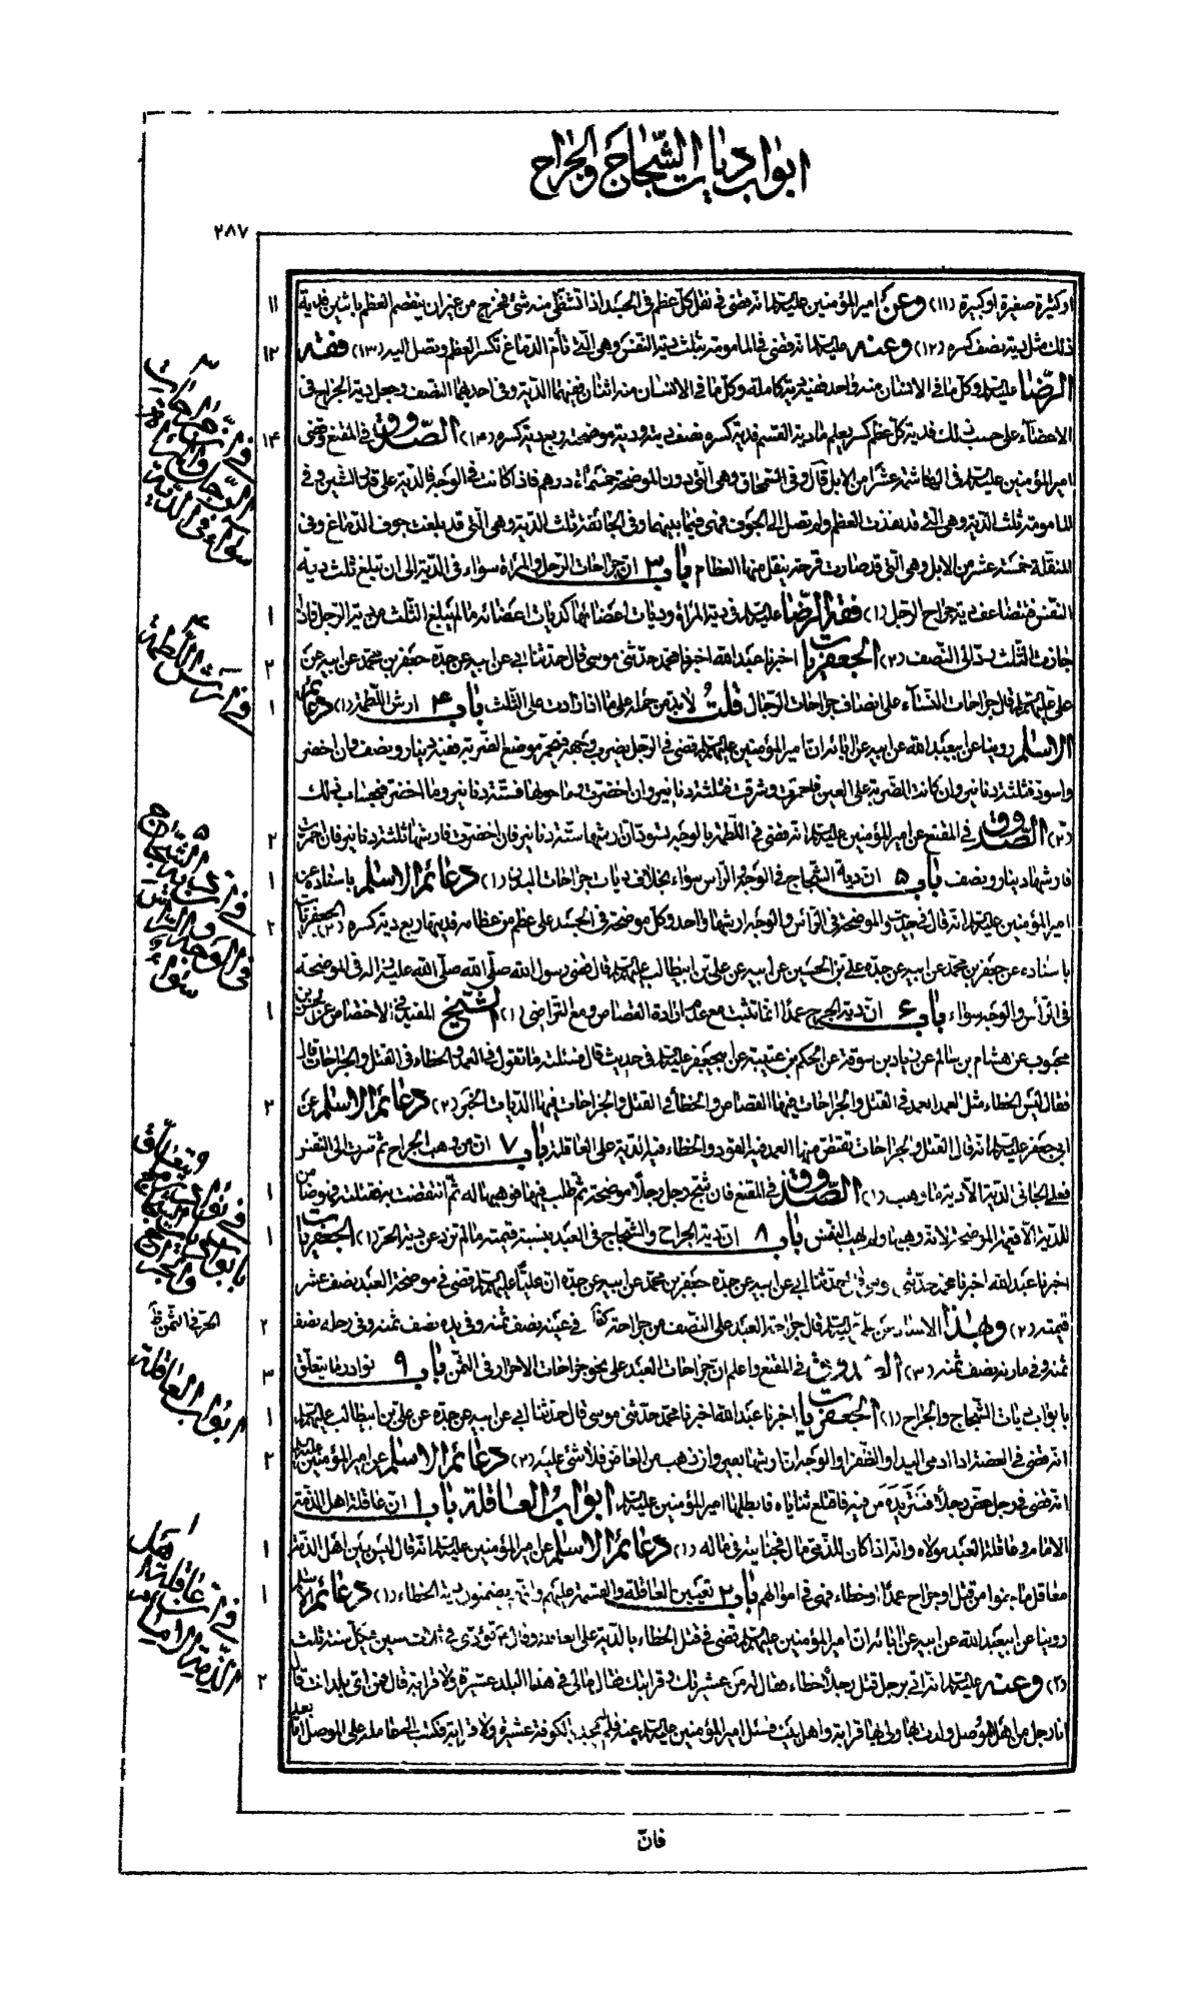 ابواب ديات الشّجاج والجراح
٢٨٧
او كثيرة صغيرة او كبيرة (١١) وعن امير المؤمنين عليه السلم انه قضى في نقل كل عظم في الجسد اذا تشظى منه شئ فخرج من غير ان ينقصم العظم باثنين فدية ١١
ذلك مثل دية نصف كسره (١٢) وعنه عليه السلم انه قضى في المامومة بثلث دية النفس وهي التي تأم الدماغ تكسر العظم وتصل اليه (١٣) فقه ١٣
الرضا عليه السلم وكل ما في الانسان منه واحد ففيه دية كاملة وكل ما في الانسان منه اثنان ففيهما الدية وفي احدهما النصف وجعل دية الجراح في
الاعضاء على حسب ذلك فدية كل عظم كسر يعلم ما دية القسم فدية كسره نصف ديته ودية موضحته ربع دية كسره (١٤) الصدوق في المقنع وقضى ١٤
امير المؤمنين عليه السلم في الهاشمة عشرا من الابل قال وفي السمحاق وهي التي دون الموضحة خمسمأة درهم فاذا كانت في الوجه فالدية على قدر الشين وفي
المامومة ثلث الدية وهي التي قد نفذت العظم ولم تصل الى الجوف فهي فيما بينهما وفي الجائفة ثلث الدية وهي التي قد بلغت جوف الدماغ وفي
المنقلة خمسة عشر من الابل وهي التي قد صارت قرحة ينقل منها العظام باب ٣ ان جراحات الرجل والمرأة سواء في الدية الى ان تبلغ ثلث دية
النفس فتضاعف دية جراح الرجل (١) فقه الرضا عليه السلم في دية المرأة وديات اعضائها كديات اعضائه ما لم يبلغ الثلث من دية الرجل فاذا ١
جازت الثلث رد الى النصف (٢) الجعفريات اخبرنا عبد الله اخبرنا محمد حدثني موسى قال حدثنا ابي عن ابيه عن جده جعفر بن محمد عن ابيه عن ٢
علي عليه السلم قال جراحات النساء على انصاف جراحات الرجال قلت لا بد من حمله على ما اذا زادت على الثلث باب ٤ ارش اللطمة (١) دعائم ١
الاسلم روينا عن ابي عبد الله عن ابيه عن ابائه ان امير المؤمنين عليه السلم قضى في الرجل يضرب وجهه فيحمر موضع الضربة ففيه دينار ونصف وان اخضر
واسود فثلثة دنانير وان كانت الضربة على العين فاحمرت وشرقت فثلثة دنانير وان اخضرت وما حولها فستة دنانير وما اخضر فبحساب ذلك
(٢) الصدوق في المقنع عن امير المؤمنين عليه السلم انه قضى في اللطمة بالوجه تسود ان ارشها ستة دنانير فان اخضرت فارشها ثلثة دنانير فان احمرت ٢
فارشها دينار ونصف باب ٥ ان دية الشجاج في الوجه والرأس سواء بخلاف ديات جراحات البدن (١) دعائم الاسلم باسناده عن ١
امير المؤمنين عليه السلم انه قال في حديث والموضحة في الرأس والوجه ارشها واحد وكل موضحة في الجسد على عظم من عظامه فديتها ربع دية كسره (٢) الجعفريات ٢
باسناده عن جعفر بن محمد عن ابيه عن جده علي بن الحسين عن ابيه عن علي بن ابيطالب عليهم السلم قال قضى رسول الله صلى الله عليه واله في الموضحة
في الرأس والوجه سواء باب ٦ ان دية الجرح عمدا انما تثبت مع عدم ارادة القصاص ومع التراضي (١) الشيخ المفيد في الاختصاص عن ابن ١
محبوب عن هشام بن سالم عن زياد بن سوقة عن الحكم بن عتيبة عن ابيجعفر عليه السلم في حديث قال فسئلته ما تقول في العمد والخطاء في القتل والجراحات قال
فقال ليس الخطاء مثل العمد العمد في القتل والجراحات فيهما القصاص والخطأ في القتل والجراحات فيها الديات الخبر (٢) دعائم الاسلم عن ٢
ابي جعفر عليه السلم انه قال القتل والجراحات تقتص منها العمد فيه القود والخطاء فيه الدية على العاقلة باب ٧ ان من وهب الجراح ثم سرت الى النفس
فعلى الجاني الدية الا دية ما وهب (١) الصدوق في المقنع فان شج رجل رجلا موضحة ثم طلب فيها فوهبها له ثم انتقضت به فقتلته فهو ضامن ١
للدية الا قيمة الموضحة لانه وهبها ولم يهب النفس باب ٨ ان دية الجراح والشجاج في العبد بنسبة قيمته ما لم تزد عن دية الحر (١) الجعفريات ١
اخبرنا عبد الله اخبرنا محمد حدثني موسى قال حدثنا ابي عن ابيه عن جده جعفر بن محمد عن ابيه عن جده ان عليا عليه السلم قضى في موضحة العبد نصف عشر
قيمته (٢) وبهذا الاسناد عن علي عليه السلم قال جراحة العبد على النصف من جراحة كذا في عينه نصف ثمنه وفي يده نصف ثمنه وفي رجله نصف ٢
ثمنه وفي مارنه نصف ثمنه (٣) الصدوق في المقنع واعلم ان جراحات العبد على نحو جراحات الاحرار في الثمن باب ٩ نوادر ما يتعلق ٣
بابواب ديات الشجاج والجراح (١) الجعفريات اخبرنا عبد الله اخبرنا محمد حدثني موسى قال حدثنا ابي عن ابيه عن جده عن علي بن ابيطالب عليهم السلم ١
انه قضى في العضة اذا ادمى اليد او الظفر او الوجه ان ارشها بعير وان ذهب من العاض فلا شئ عليه (٢) دعائم الاسلم عن امير المؤمنين عليه السلم ٢
انه قضى في رجل عض رجلا فنتر يده من فيه فاقتلع ثناياه فابطلها امير المؤمنين عليه السلم ابواب العاقلة باب ١ ان عاقلة اهل الذمة
الامام وعاقلة العبد مولاه وانه اذا كان للذمي مال فجنايته في ماله (١) دعائم الاسلم عن امير المؤمنين عليه السلم انه قال ليس بين اهل الذمة ١
معاقل ما جنوا من قتل او جراح عمدا او خطاء فهي في اموالهم باب ٢ تعيين العاقلة والقسمة عليهم وانهم يضمنون دية الخطاء (١) دعائم الاسلم ١
روينا عن ابيعبد الله عن ابيه عن ابائه ان امير المؤمنين عليه السلم قضى في قتل الخطاء بالدية على العاقلة وقال تؤدى في ثلث سنين في كل سنة ثلث
(٢) وعنه عليه السلم انه اتي برجل قتل رجلا خطاء فقال له من عشيرتك وقرابتك فقال مالي في هذا البلد عشيرة ولا قرابة قال فمن اي بلد انت قال ٢
انا رجل من اهل الموصل ولدت بها ولي بها قرابة واهل بيت فسئل امير المؤمنين عليه السلم عنه فلم يجد له بالكوفة عشيرة ولا قرابة فكتب الى عامله على الموصل اما بعد
٣
في ان جراحات
الرجل والمرأة
سواء في الدية
٤
في ارش اللطمة
٥
في ان دية الشجاج
في الوجه والرأس
سواء
فيما يتعلق
بابواب ديات الشجاج
والجراح
الحر في الثمن ظ
ابواب العاقلة
في ان عاقلة اهل
الذمة الامام
فانّ